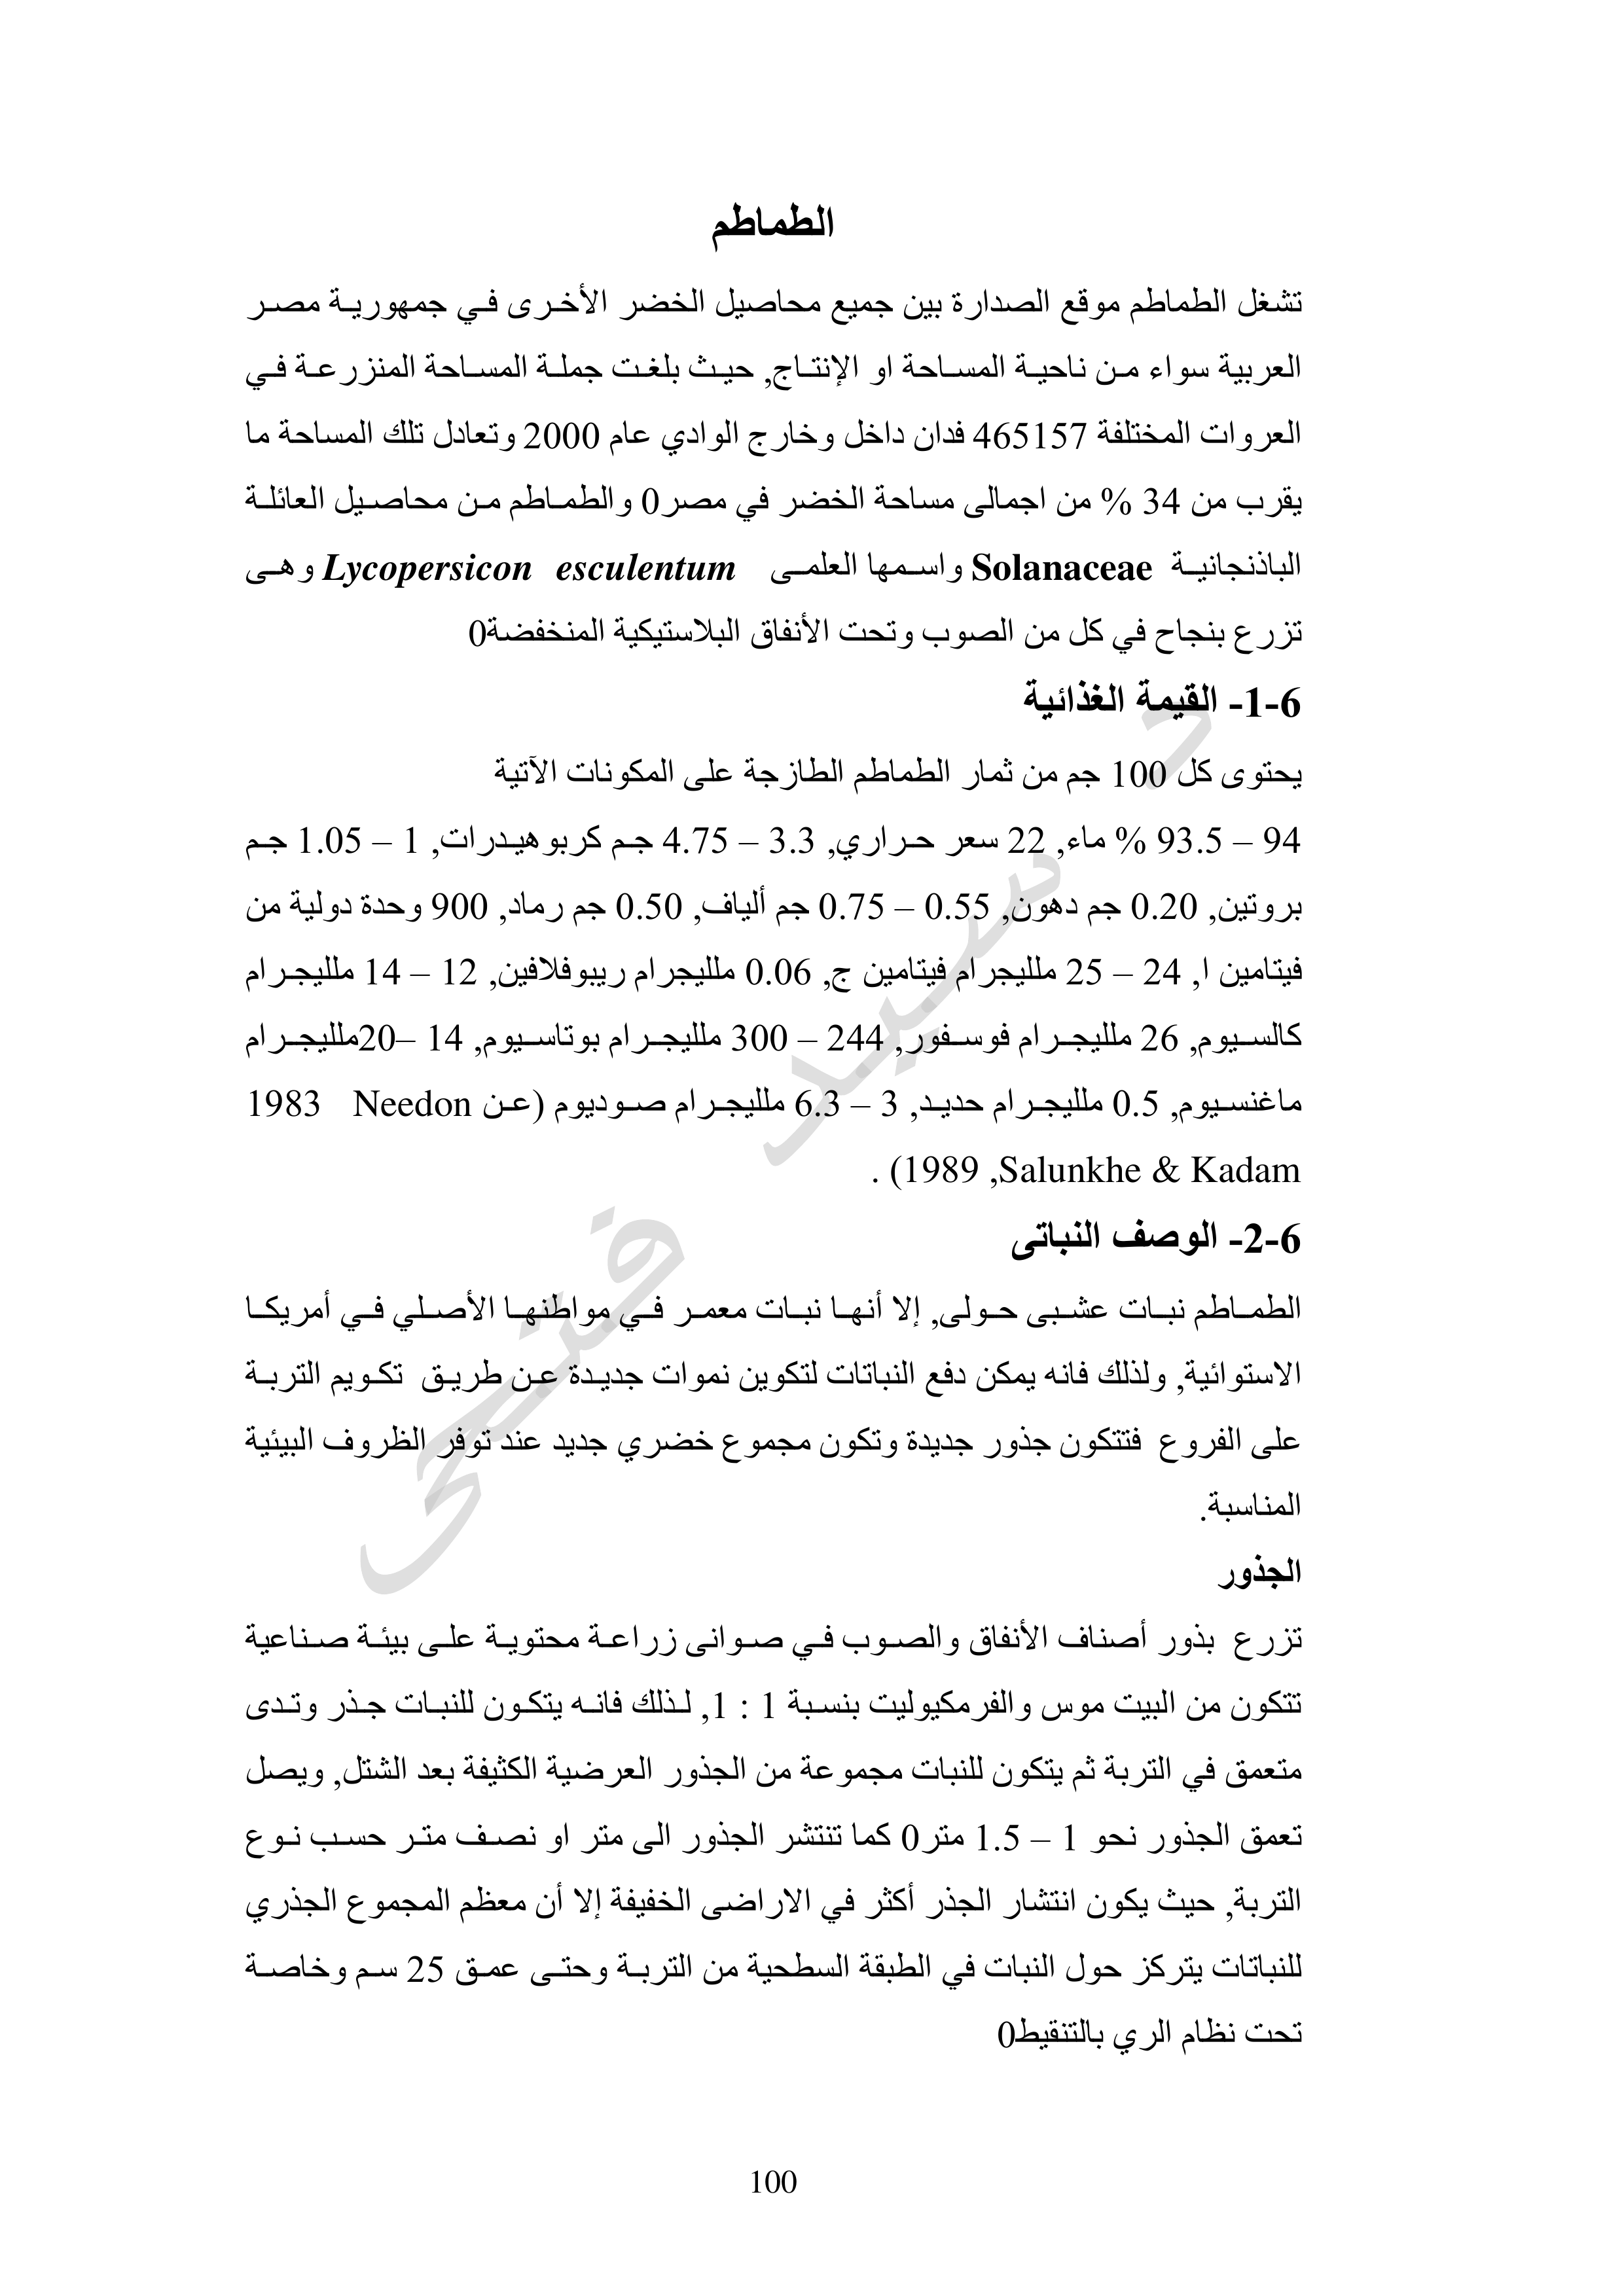 الطماطم
تشغل الطماطم موقع الصدارة بين جميع محاصيل الخضر الأخرى في جمهورية مصر
العربية سواء من ناحية المساحة او الإنتاج, حيث بلغت جملة المساحة المنزرعة في
العروات المختلفة 465157 فدان داخل وخارج الوادي عام 2000 وتعادل تلك المساحة ما
يقرب من 34 % من اجمالى مساحة الخضر في مصر0 والطماطم من محاصيل العائلة
الباذنجانية Solanaceae واسمها العلمى Lycopersicon esculentum وهى
تزرع بنجاح في كل من الصوب وتحت الأنفاق البلاستيكية المنخفضة0
6-1- القيمة الغذائية
يحتوى كل 100 جم من ثمار الطماطم الطازجة على المكونات الآتية
94 – 93.5 % ماء, 22 سعر حراري, 3.3 – 4.75 جم كربوهيدرات, 1 – 1.05 جم
بروتين, 0.20 جم دهون, 0.55 – 0.75 جم ألياف, 0.50 جم رماد, 900 وحدة دولية من
فيتامين ا, 24 – 25 ملليجرام فيتامين ج, 0.06 ملليجرام ريبوفلافين, 12 – 14 ملليجرام
كالسيوم, 26 ملليجرام فوسفور, 244 – 300 ملليجرام بوتاسيوم, 14 –20ملليجرام
ماغنسيوم, 0.5 ملليجرام حديد, 3 – 6.3 ملليجرام صوديوم (عن Needon 1983
Salunkhe & Kadam, 1989) .
6-2- الوصف النباتى
الطماطم نبات عشبى حولى, إلا أنها نبات معمر في مواطنها الأصلي في أمريكا
الاستوائية, ولذلك فانه يمكن دفع النباتات لتكوين نموات جديدة عن طريق تكويم التربة
على الفروع فتتكون جذور جديدة وتكون مجموع خضري جديد عند توفر الظروف البيئية
المناسبة.
الجذور
تزرع بذور أصناف الأنفاق والصوب في صوانى زراعة محتوية على بيئة صناعية
تتكون من البيت موس والفرمكيوليت بنسبة 1 : 1, لذلك فانه يتكون للنبات جذر وتدى
متعمق في التربة ثم يتكون للنبات مجموعة من الجذور العرضية الكثيفة بعد الشتل, ويصل
تعمق الجذور نحو 1 – 1.5 متر0 كما تنتشر الجذور الى متر او نصف متر حسب نوع
التربة, حيث يكون انتشار الجذر أكثر في الاراضى الخفيفة إلا أن معظم المجموع الجذري
للنباتات يتركز حول النبات في الطبقة السطحية من التربة وحتى عمق 25 سم وخاصة
تحت نظام الري بالتنقيط0
د سيد فتحى
100